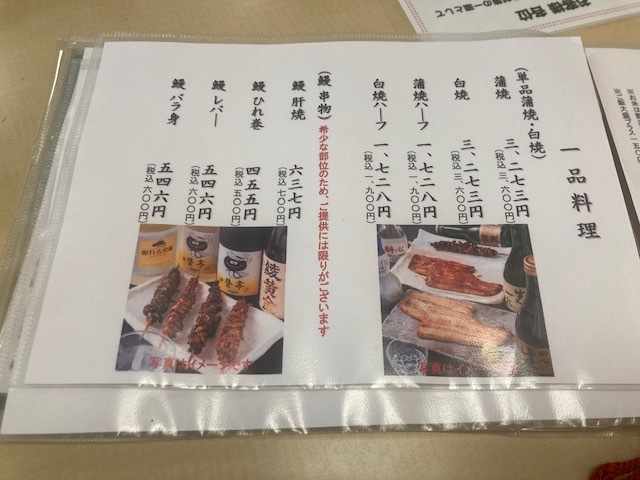 お客様各位
一品料理
(単品蒲焼・白焼)
蒲焼 三、二七三円
(税込 三、六〇〇円)
白焼 三、二七三円
(税込 三、六〇〇円)
蒲焼ハーフ 一、七二八円
(税込 一、九〇〇円)
白焼ハーフ 一、七二八円
(税込 一、九〇〇円)
(鰻串物) 希少な部位のため、ご提供には限りがございます
鰻肝焼 六三七円
(税込 七〇〇円)
鰻ひれ巻 四五五円
(税込 五〇〇円)
鰻レバー 五四六円
(税込 六〇〇円)
鰻バラ身 五四六円
(税込 六〇〇円)
写真はイメージです
写真はイメージです
綾黄金